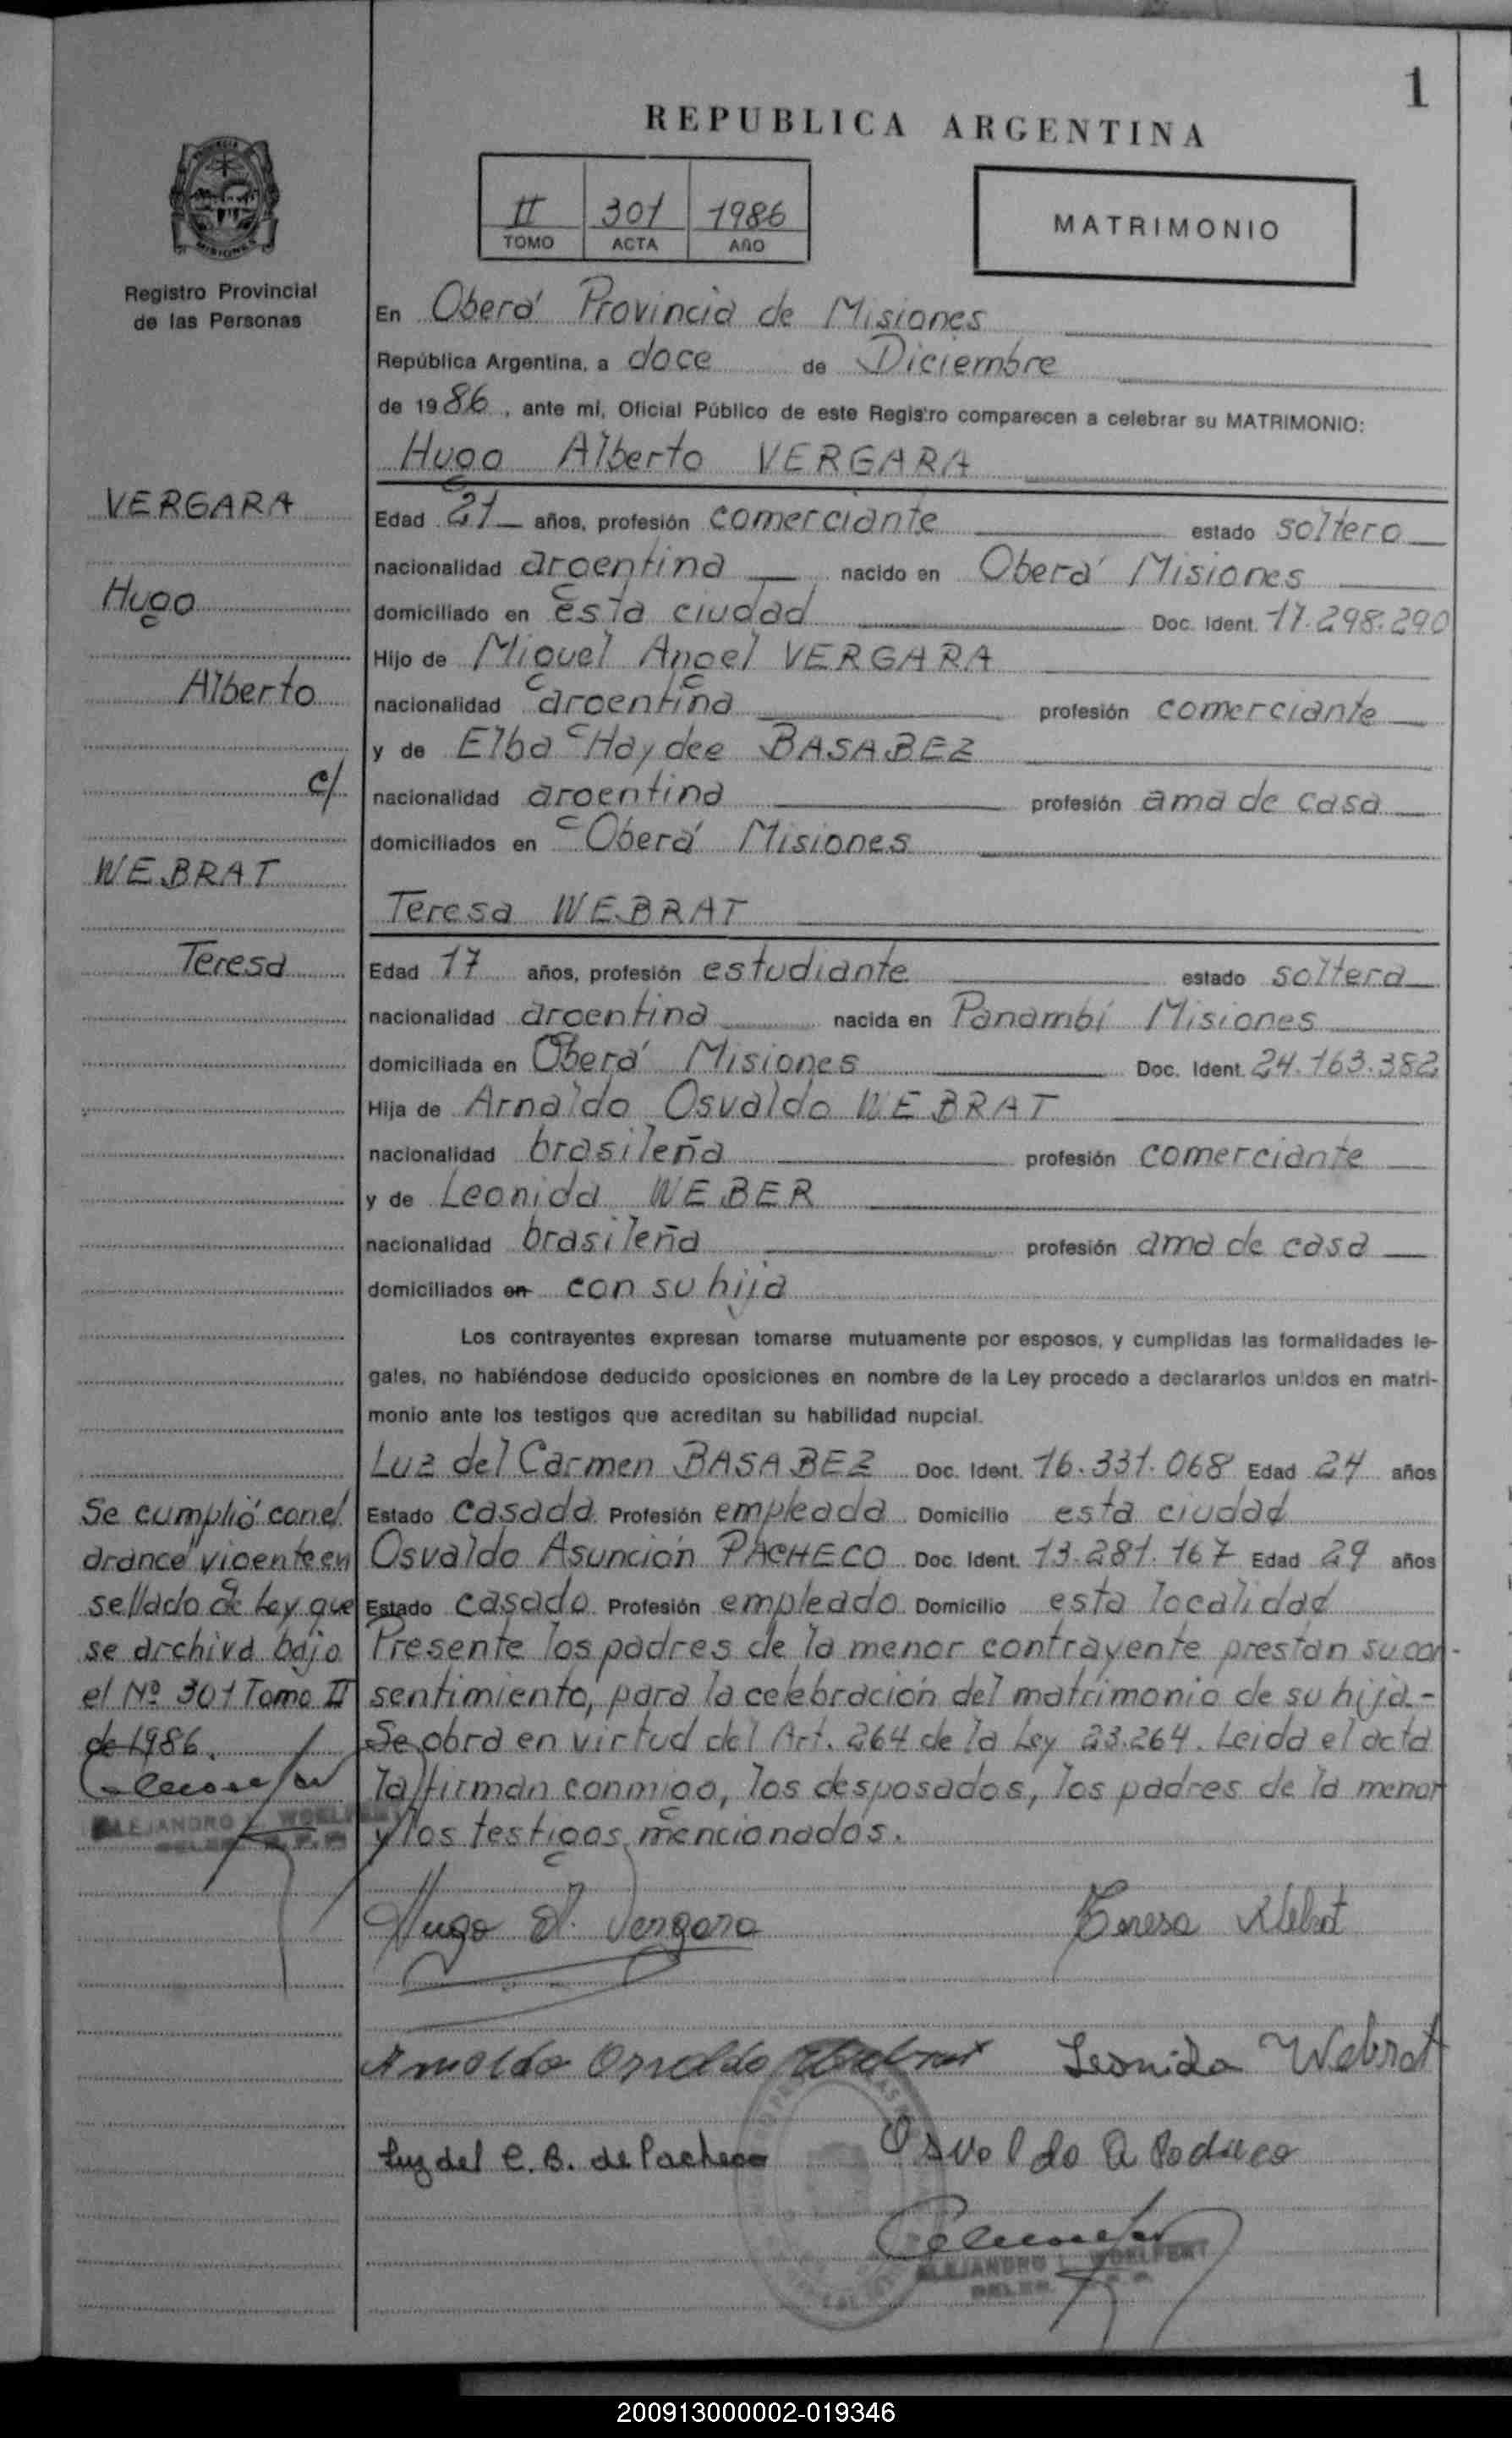 1
REPUBLICA ARGENTINA
II 301 1986
TOMO ACTA AÑO
MATRIMONIO
MISIONES
Registro Provincial
de las Personas
En Oberá Provincia de Misiones
República Argentina, a doce de Diciembre
de 1986, ante mí, Oficial Público de este Registro comparecen a celebrar su MATRIMONIO:
Hugo Alberto VERGARA
VERGARA
Hugo
Alberto
c/
WEBRAT
Teresa
Edad 21 años, profesión comerciante estado soltero
nacionalidad argentina nacido en Oberá Misiones
domiciliado en esta ciudad Doc. Ident. 17.298.290
Hijo de Miguel Angel VERGARA
nacionalidad argentina profesión comerciante
y de Elba Haydee BASABEZ
nacionalidad argentina profesión ama de casa
domiciliados en Oberá Misiones
Teresa WEBRAT
Edad 17 años, profesión estudiante estado soltera
nacionalidad argentina nacida en Panambí Misiones
domiciliada en Oberá Misiones Doc. Ident. 24.163.382
Hija de Arnaldo Osvaldo WEBRAT
nacionalidad brasileña profesión comerciante
y de Leonida WEBER
nacionalidad brasileña profesión ama de casa
domiciliados en con su hija
Los contrayentes expresan tomarse mutuamente por esposos, y cumplidas las formalidades le-
gales, no habiéndose deducido oposiciones en nombre de la Ley procedo a declararlos unidos en matri-
monio ante los testigos que acreditan su habilidad nupcial.
Luz del Carmen BASABEZ Doc. Ident. 16.331.068 Edad 24 años
Estado casada Profesión empleada Domicilio esta ciudad
Osvaldo Asunción PACHECO Doc. Ident. 13.281.167 Edad 29 años
Estado casado Profesión empleado Domicilio esta localidad
Presente los padres de la menor contrayente prestan su con-
sentimiento, para la celebración del matrimonio de su hija.-
Se obra en virtud del Art. 264 de la Ley 23.264. Leida el acta
la firman conmigo, los desposados, los padres de la menor
y los testigos mencionados.
Se cumplió con el
arancel vigente en
sellado de Ley que
se archiva bajo
el Nº 301 Tomo II
de 1986.
ALEJANDRO L. WOELFERT
Hugo A. Vergara Teresa Webrat
Arnoldo Osvaldo Webrat Leonida Webrat
Luz del C. B. de Pacheco Osvaldo A Pacheco
ALEJANDRO L. WOELFERT
200913000002-019346